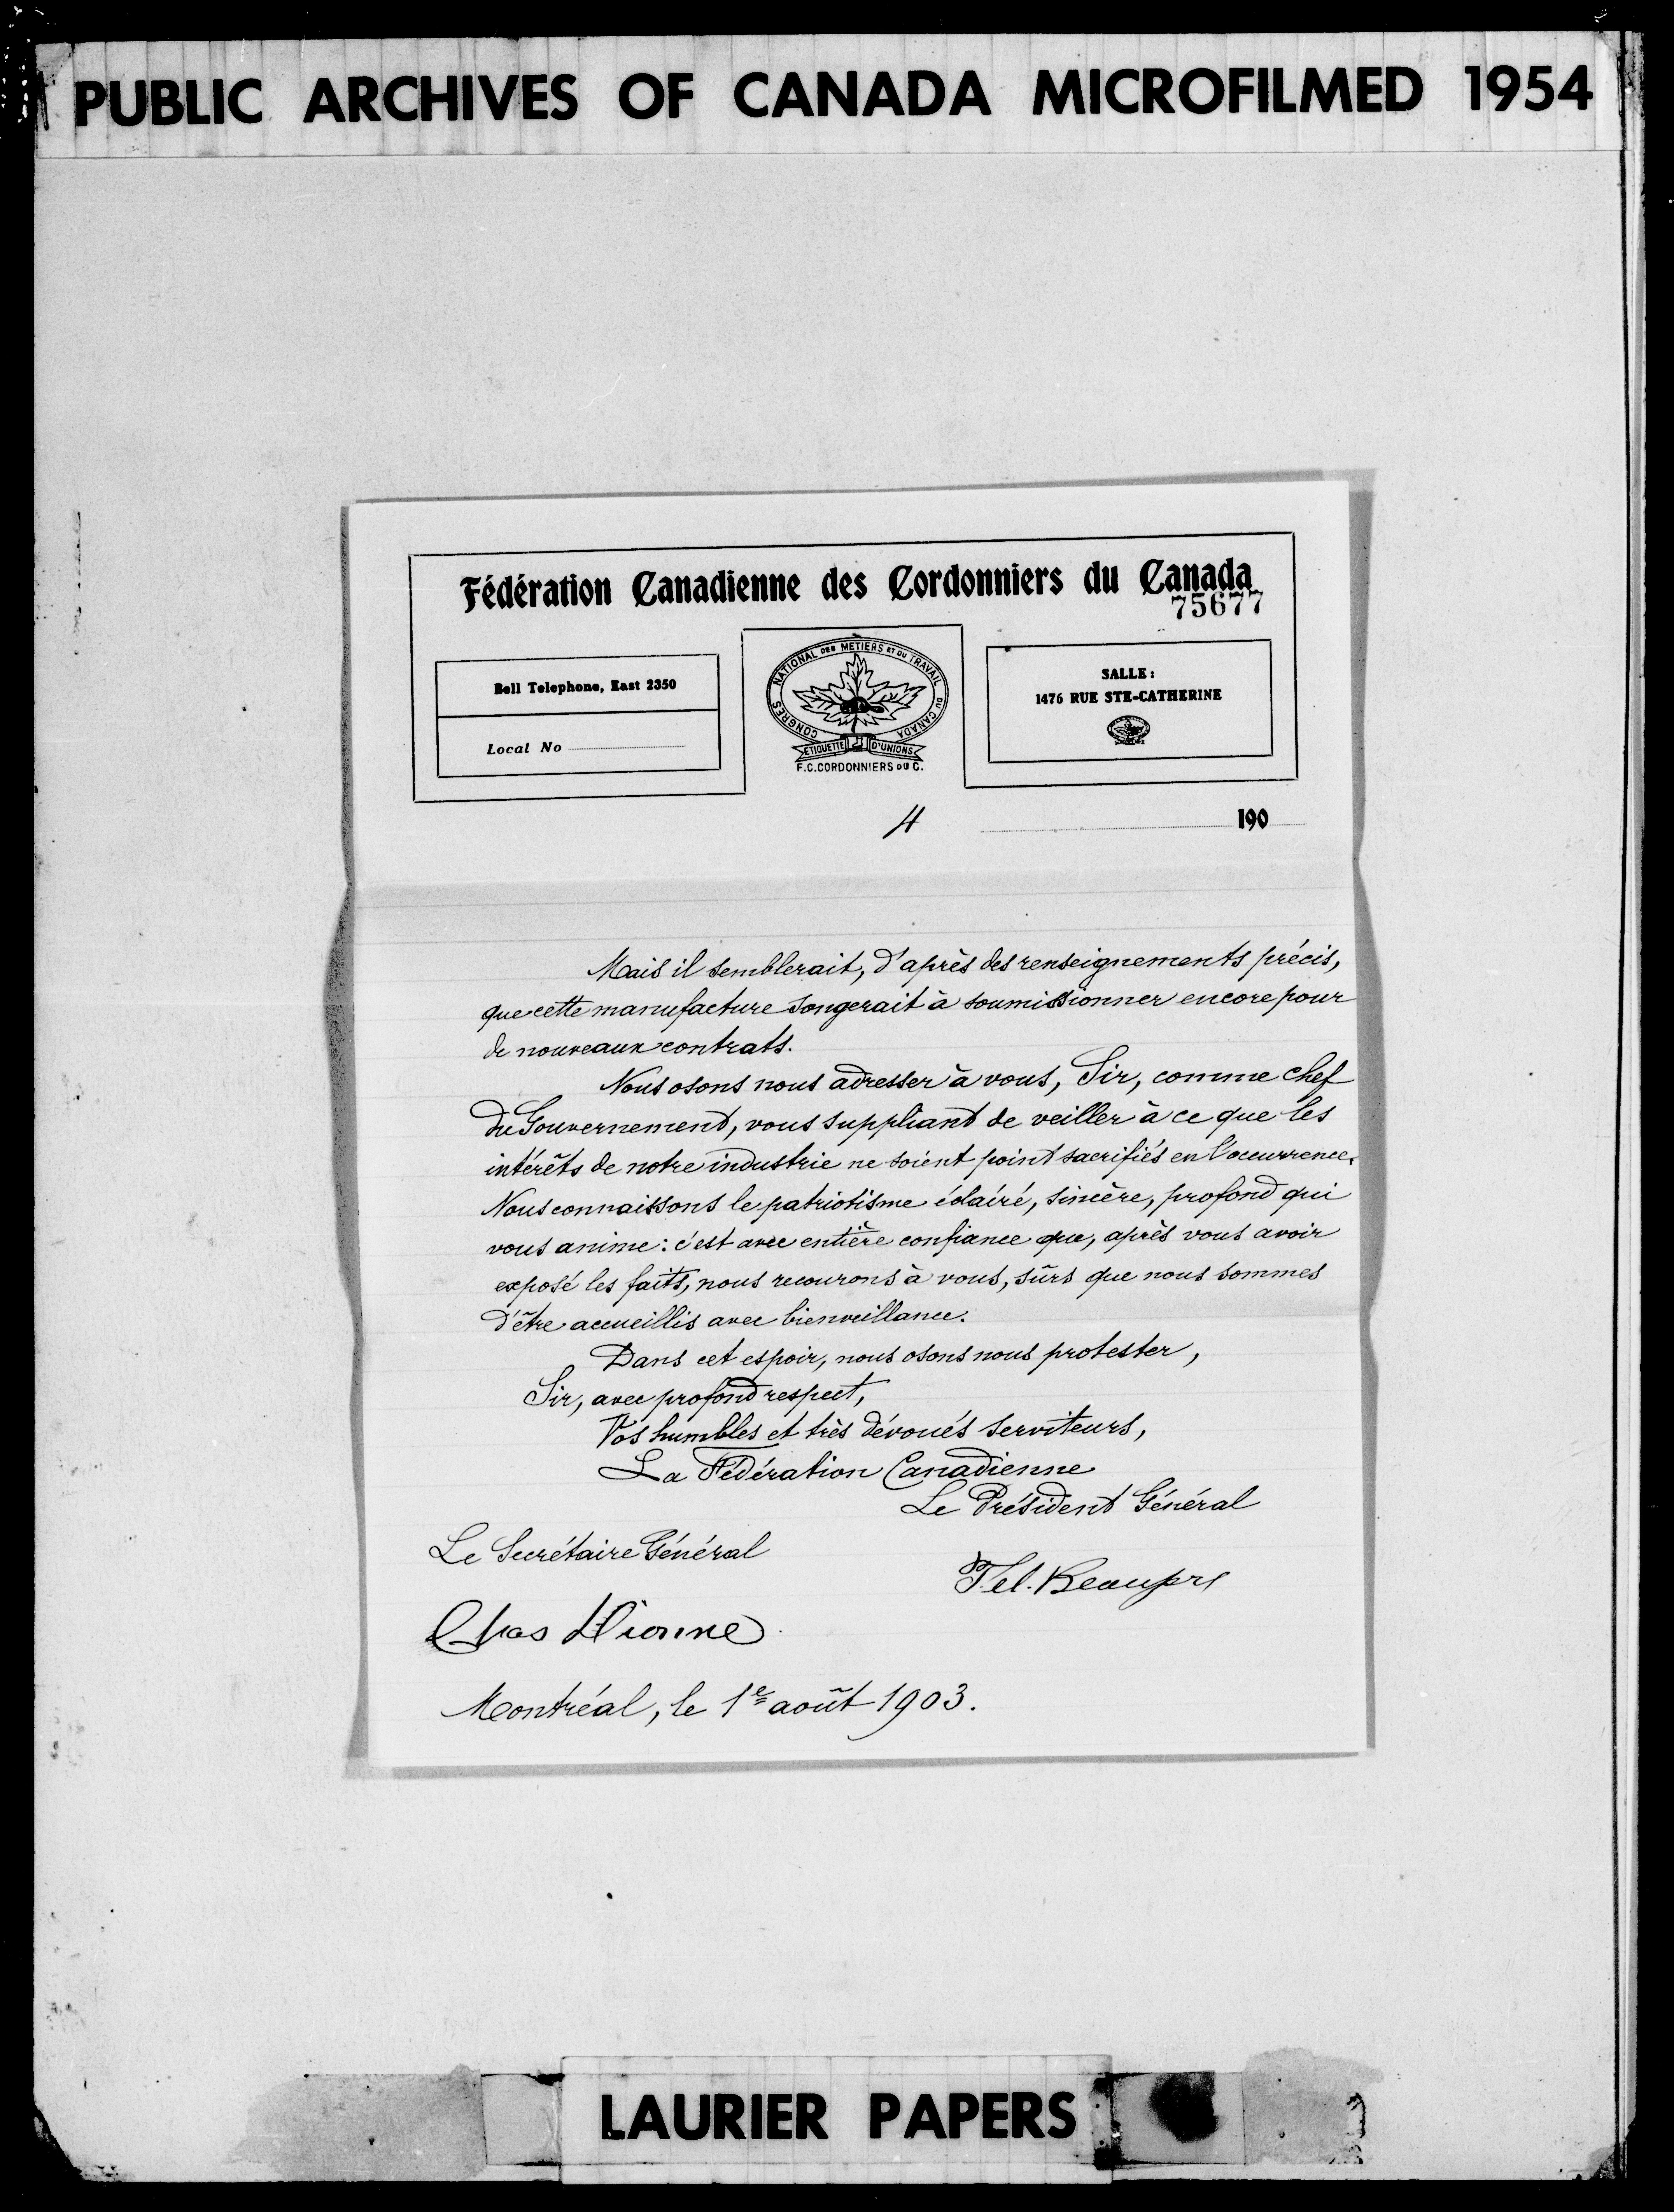 PUBLIC ARCHIVES OF CANADA MICROFILMED 1954
Fédération Canadienne des Cordonniers du Canada
75677
Bell Telephone, East 2350
Local No
CONGRÈS NATIONAL DES MÉTIERS ET DU TRAVAIL DU CANADA
ETIQUETTE D'UNIONS
F.C. CORDONNIERS DU C.
SALLE:
1476 RUE STE-CATHERINE
4
190
Mais il semblerait, d'après des renseignements précis,
que cette manufacture songerait à soumissionner encore pour
de nouveaux contrats.
Nous osons nous adresser à vous, Sir, comme chef
du Gouvernement, vous suppliant de veiller à ce que les
intérêts de notre industrie ne soient point sacrifiés en l'occurrence.
Nous connaissons le patriotisme éclairé, sincère, profond qui
vous anime: c'est avec entière confiance que, après vous avoir
exposé les faits, nous recourons à vous, sûrs que nous sommes
d'être accueillis avec bienveillance.
Dans cet espoir, nous osons nous protester,
Sir, avec profond respect,
Vos humbles et très dévoués serviteurs,
La Fédération Canadienne
Le Président Général
Le Secrétaire Général
Fel. Beaupré
Chas Dionne
Montréal, le 1er août 1903.
LAURIER PAPERS